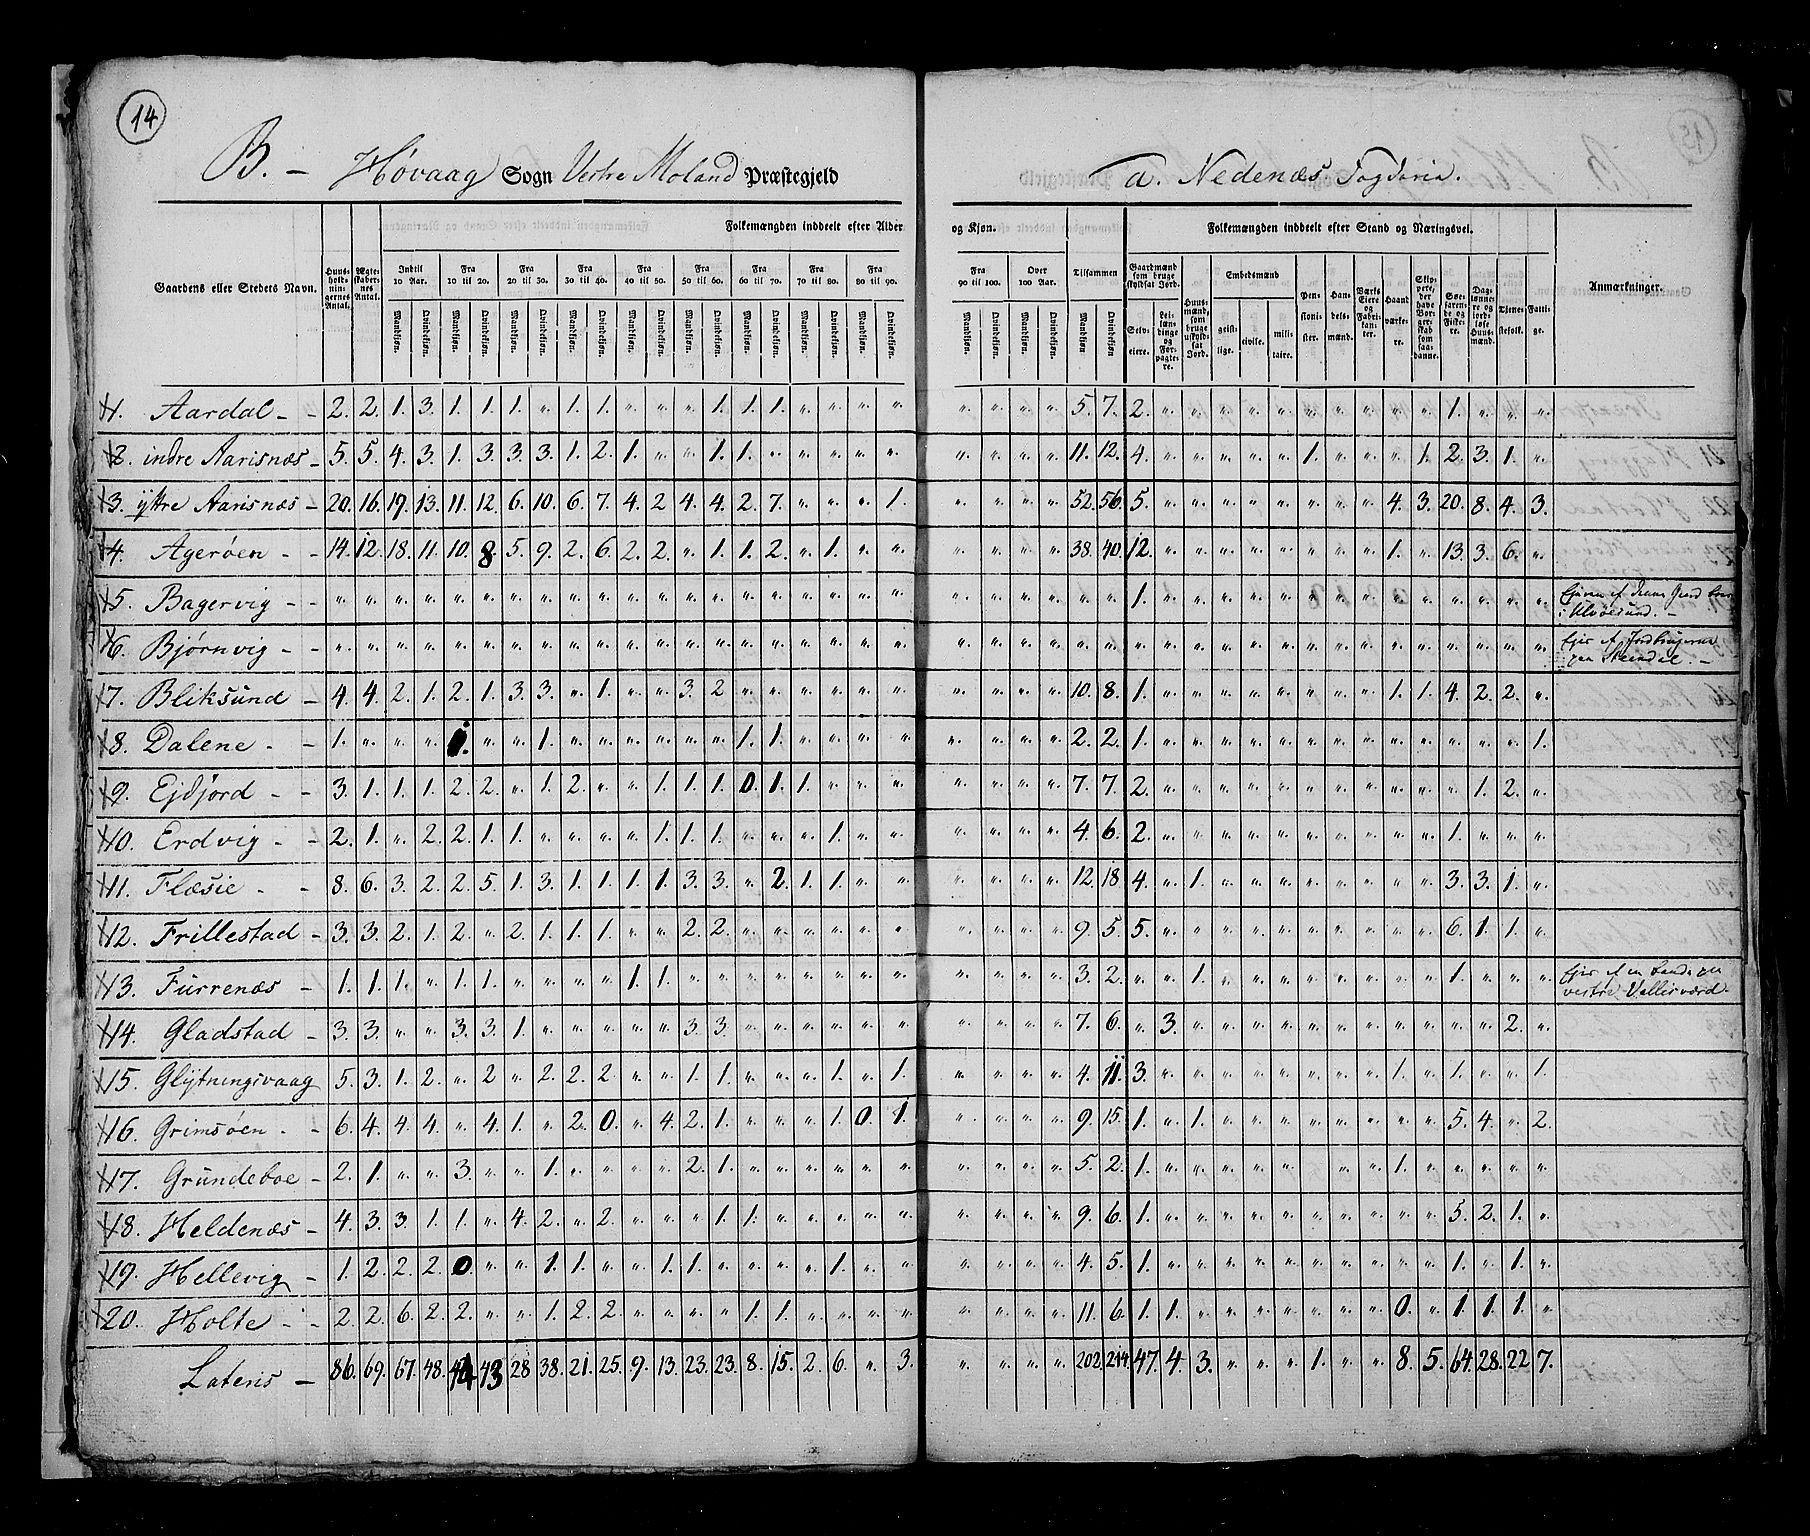 14
B. – Høvaag Sogn Vestre Moland Præstegjeld
a. Nedenæs Fogderie.
Folkemængden inddeelt efter Alder og Kjøn.
Folkemængden inddeelt efter Stand og Næringsvei.
Gaardens eller Stedets Navn. Huusholdningernes Antal. Ægteskabernes Antal. Indtil 10 Aar. Fra 10 til 20. Fra 20 til 30. Fra 30 til 40. Fra 40 til 50. Fra 50 til 60. Fra 60 til 70. Fra 70 til 80. Fra 80 til 90. Fra 90 til 100. Over 100 Aar. Tilsammen Gaardmænd som bruge skyldsat Jord. Huusmænd, som bruge uskyldsat Jord. Embedsmænd Pensionister. Handelsmænd. Værks Eiere og Fabrikanter. Haandværkere. Skippere, der have Borgerskab som saadanne. Søefarende og Fiskere. Daglønnere og jordløse Huusmænd. Tjenestefolk. Fattige. Anmærkninger.
Mandkjøn. Qvindekjøn. Selveiere. Leilændinge og Forpagtere. geistlige. civile. militaire.
1. Aardal – – 2. 2. 1. 3. 1. 1. 1. „ 1. 1. „ „ „ 1. 1. 1. „ „ „ „ „ „ „ „ 5. 7. 2. „ „ „ „ „ „ „ „ „ „ 1. „ „ „
2. indre Aarisnæs – 5. 5. 4. 3. 1. 3. 3. 3. 1. 2. 1. „ „ 1. 1. „ „ „ „ „ „ „ „ „ 11. 12. 4. „ „ „ „ „ 1. „ „ „ 1. 2. 3. 1. „
3. ÿttre Aarisnæs – 20. 16. 19. 13. 11. 12. 6. 10. 6. 7. 4. 2 4. 4. 2. 7. „ „ „ 1. „ „ „ „ 52. 56. 5. „ „ „ „ „ „ „ „ 4. 3. 20. 8. 4. 3.
4. Agerøen – – 14. 12. 18. 11. 10. 8. 5. 9. 2. 6. 2. 2. „ 1. 1. 2. „ 1. „ „ „ „ „ „ 38. 40. 12. „ „ „ „ „ „ „ „ 1. „ 13. 3. 6. „
5. Bagervig – – „ „ „ „ „ „ „ „ „ „ „ „ „ „ „ „ „ „ „ „ „ „ „ „ „ „ 1. „ „ „ „ „ „ „ „ „ „ „ „ „ „
i Ulvøesund. –
6. Bjørnvig – „ „ „ „ „ „ „ „ „ „ „ „ „ „ „ „ „ „ „ „ „ „ „ „ „ „ „ „ „ „ „ „ „ „ „ „ „ „ „ „ „
7. Bliksund – 4. 4. 2. 1. 2. 1. 3. 3. „ 1. „ „ 3. 2 „ „ „ „ „ „ „ „ „ „ 10. 8. 1. „ „ „ „ „ „ „ „ 1. 1. 4. 2. 2. „
8. Dalene – – 1. „ „ „ 1. „ „ 1. „ „ „ „ „ „ 1. 1. „ „ „ „ „ „ „ „ 2. 2. 1. „ „ „ „ „ „ „ „ „ „ „ „ „ 1.
9. Ejdjord – – 3. 1. 1. 1. 2. 2. „ 1. 2. „ „ 1. 1. 1. 0. 1. 1. „ „ „ „ „ „ „ 7. 7. 2. „ „ „ „ „ „ „ „ „ „ „ 1. 2. „
10. Erdvig – – 2. 1. „ 2. 2. 1. 1. „ „ „ „ 1. 1. 1. „ „ „ 1. „ „ „ „ „ „ 4. 6. 2. „ „ „ „ „ „ „ „ „ „ 1. „ „ „
11. Flæsie – – 8. 6. 3. 2. 2. 5. 1. 3. 1. 1. 1. 1. 3. 3. „ 2. 1. 1. „ „ „ „ „ „ 12. 18 4. „ 1. „ „ „ „ „ „ „ „ 3. 3. 1. „
12. Frillestad – 3. 3. 2. 1. 2. „ 2. 1. 1. 1. „ „ 2. 2. „ „ „ „ „ „ „ „ „ „ 9. 5. 5. „ „ „ „ „ „ „ „ „ „ 6. 1. 1. „
13. Furrenæs – 1. 1. 1. „ 1. 1. „ „ „ „ 1. 1. „ „ „ „ „ „ „ „ „ „ „ „ 3. 2. „ „ 1. „ „ „ „ „ „ „ „ 1. „ „ „
14. Gladstad – 3. 3. „ „ 3. 3. 1. „ „ „ „ „ 3. 3. „ „ „ „ „ „ „ „ „ „ 7. 6. „ 3. „ „ „ „ „ „ „ „ „ „ „ 2. „
15. Glÿtningsvaag 5. 3. 1. 2. „ 2 „ 2. 2. 2. „ „ 1. 1. „ „ „ 1. „ 1. „ „ „ „ 4. 11. 3. „ „ „ „ „ „ „ „ 1. „ 1. „ „ 1.
16. Grimsøen – – 6. 4. 4. 4. „ 4. 1. „ 2. 0. „ 4. 2. 1. „ „ „ 1. 0. 1. „ „ „ „ 9. 15. 1. „ 1. „ „ „ „ „ „ „ „ 5. 4. „ 2.
17. Grundeboe – 2. 1. „ „ 3. „ „ 1. „ „ „ „ 2. 1. „ „ „ „ „ „ „ „ „ „ 5. 2. 1. „ „ „ „ „ „ „ „ 1. „ „ „ „ „
18. Heldenæs – 4. 3. 3. 1. 1. „ 4. 2. „ 2. „ „ „ 1. 1. „ „ „ „ „ „ „ „ „ 9. 6. 1. „ „ „ „ „ „ „ „ „ „ 5. 2. 1. „
19. Hellevig – 1. 2. 2. 2. 0. „ „ 1. 1. „ „ 1. 1. „ „ „ „ 1. „ „ „ „ „ „ 4. 5. 1. „ „ „ „ „ „ „ „ „ „ 1. „ 1. „
20. Holte – – 2. 2. 6. 2. 2. „ „ 1. 2. 2. „ „ „ „ 1. 1. „ „ „ „ „ „ „ „ 11. 6. 1. 1. „ „ „ „ „ „ „ 0. „ 1. 1. 1. „
Lateris – 86. 69. 67. 48. 44 43 28 38. 21. 25. 9. 13. 23. 23. 8. 15. 2. 6. „ 3. „ „ „ „ 202. 214. 47. 4. 3. „ „ „ 1. „ „ 8. 5. 64. 28. 22 7.